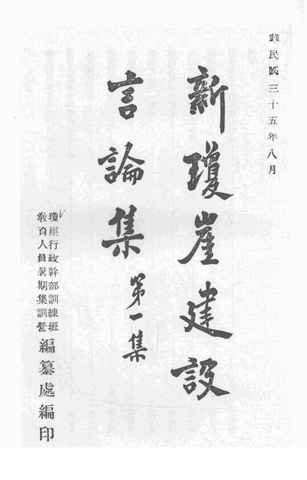 民國三十五年八月
新瓊崖建設
言論集 第一集
瓊崖行政幹部訓練班
教育人員暑期集訓營
編纂處編印